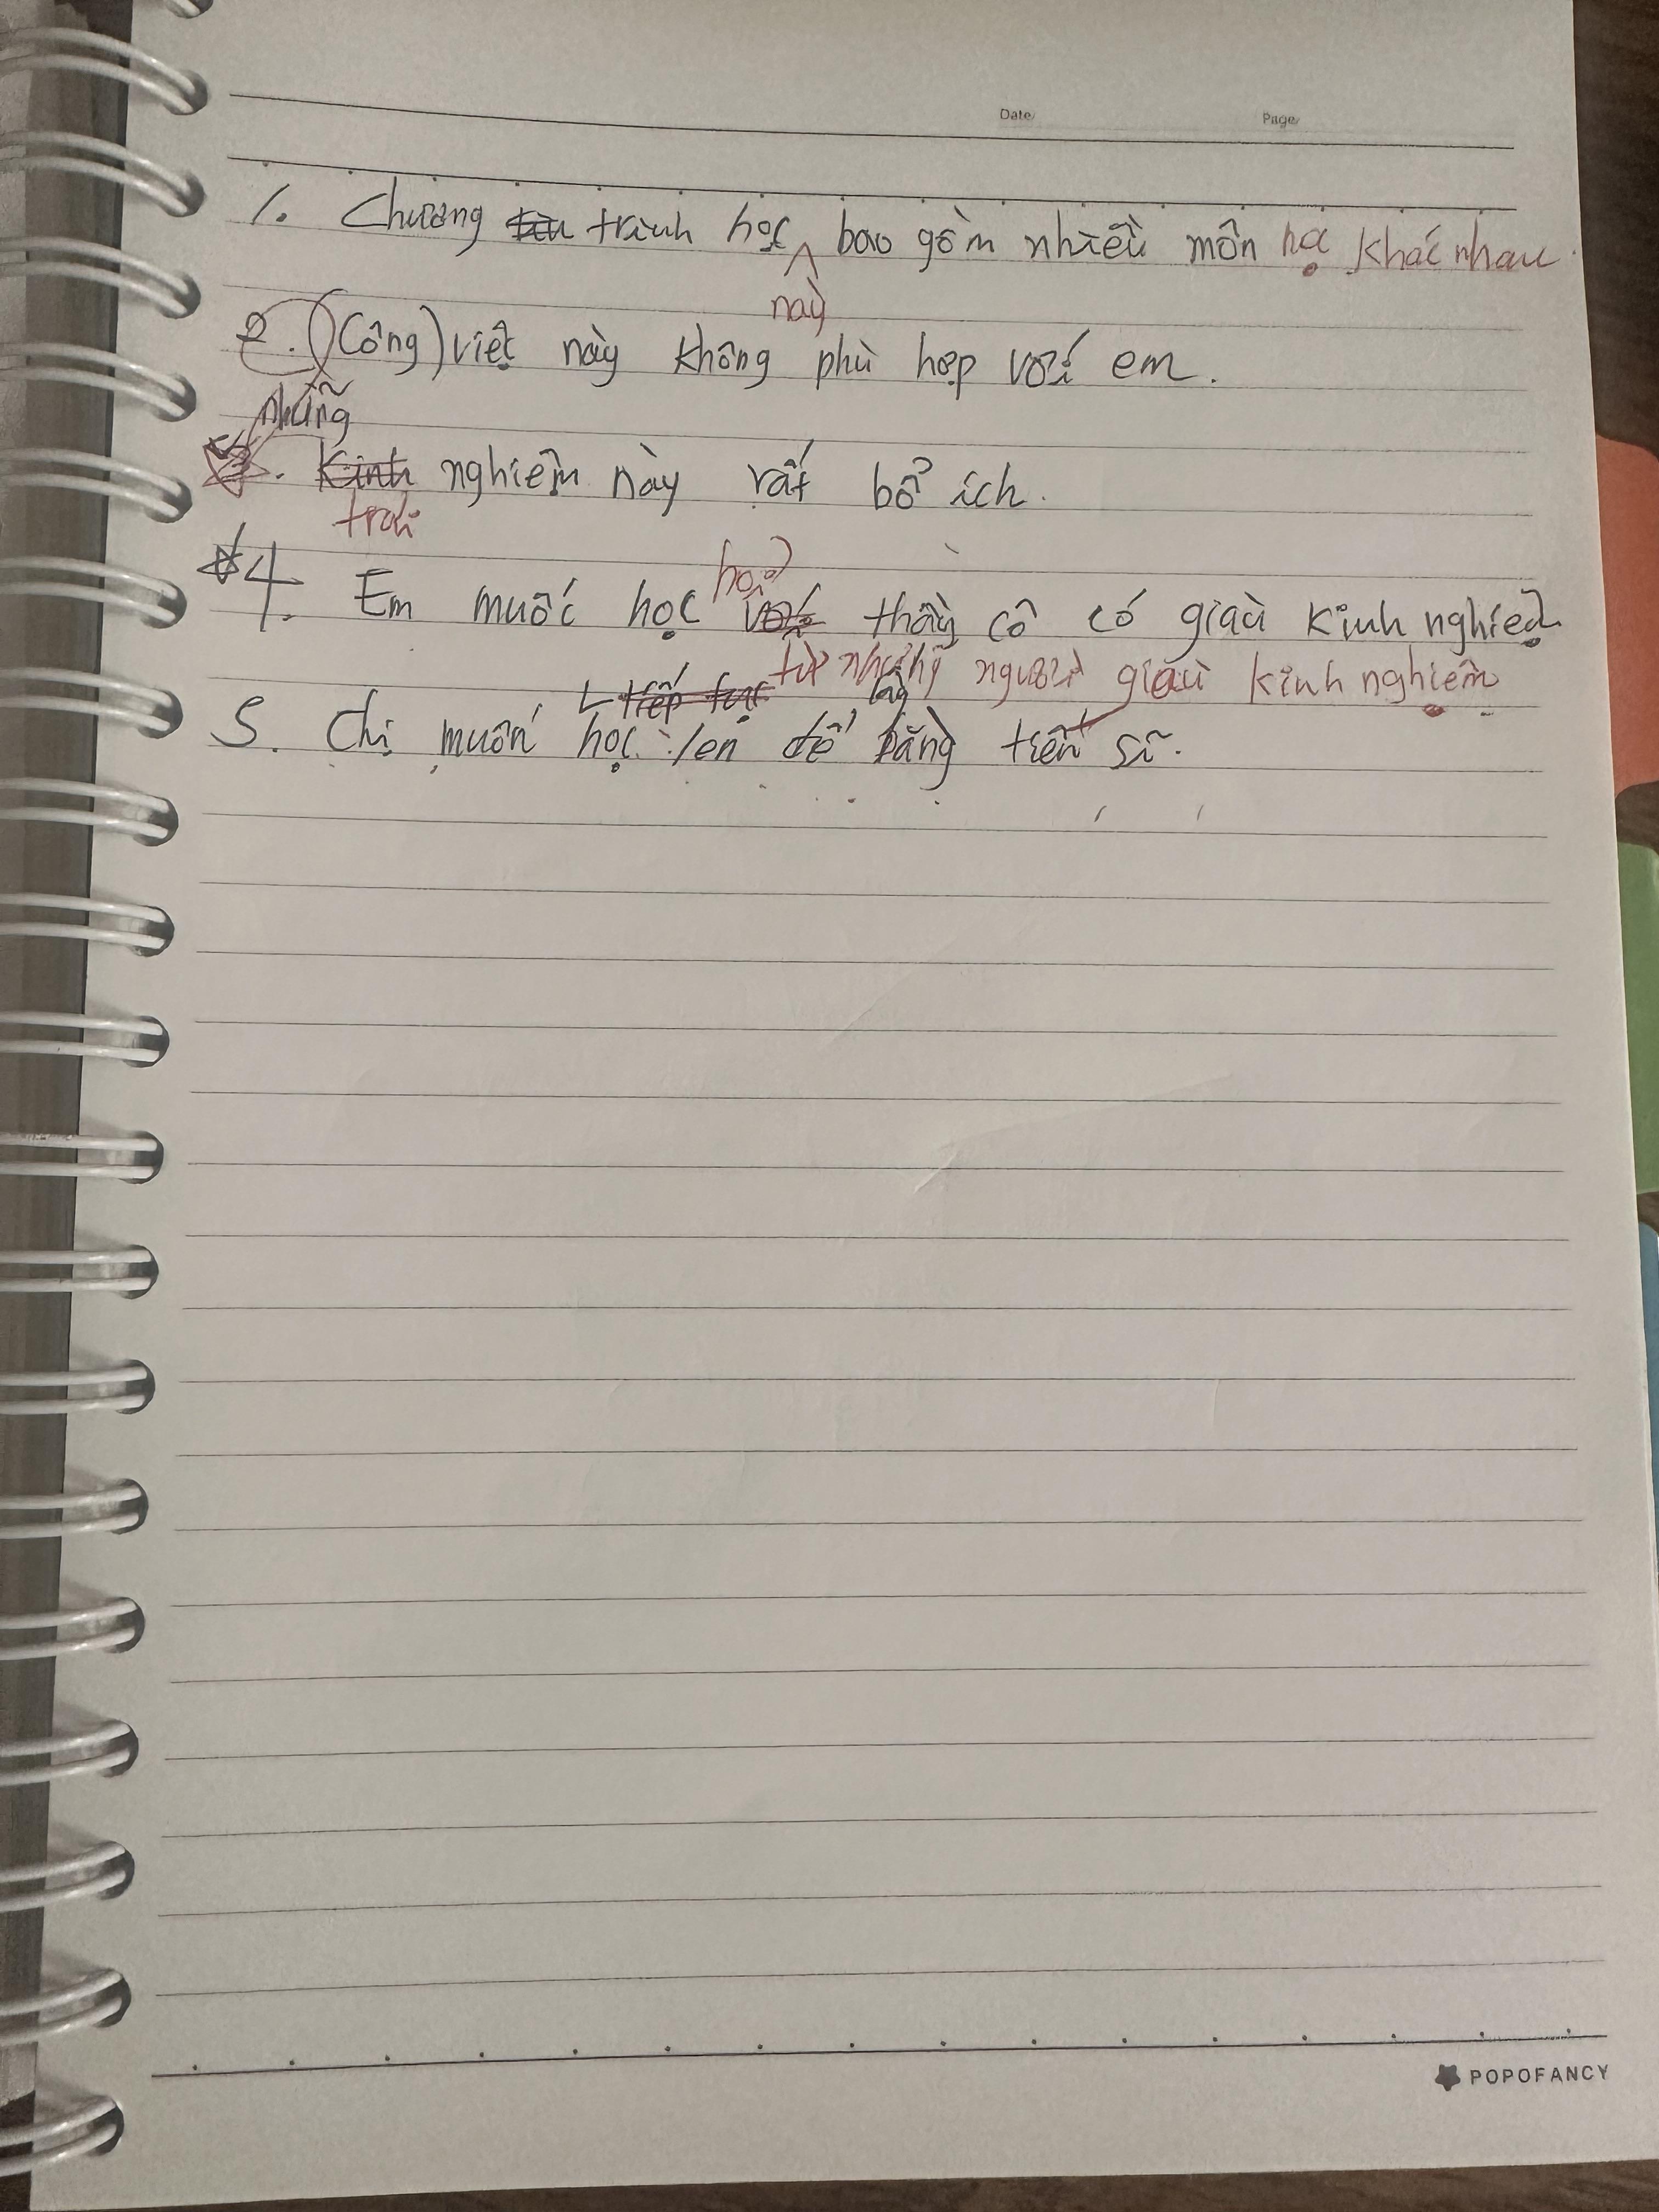 Date Page
1. Chương trình học bao gồm nhiều môn học khác nhau.
này
2. (Công) việc này không phù hợp với em.
những
3. Kinh nghiệm này rất bổ ích.
trải
hỏi
4. Em muốc học với thầy cô có giàu kinh nghiệm
từ những người giàu kinh nghiệm
tiếp tục lấy
5. Chị muốn học lên để bằng tiến sĩ.
POPOFANCY